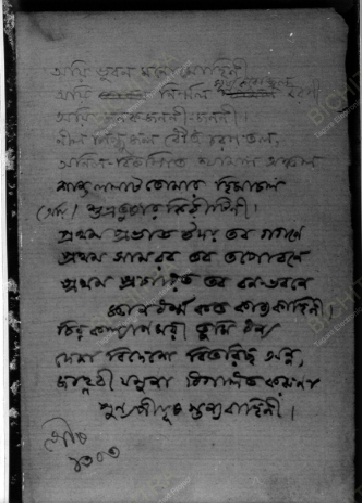 অয়ি ভুবন মনোমোহিনী
অয়ি নির্ম্মল সূর্য্যকরোজ্জ্বল ধরণী
অয়ি জনকজননী-জননী।
নীল সিন্ধু জল ধৌত চরণতল,
অনিল-বিকম্পিত শ্যামল অঞ্চল
ললাট তোমার হিমাচল
অয়ি শুভ্রতুষারকিরীটিনী।
প্রথম প্রভাত উদয় তব গগনে
প্রথম সামরব তব তপোবনে
প্রথম প্রচারিত তব বনভবনে
জ্ঞান ধর্ম্ম কত কাব্য কাহিনী।
চির কল্যাণময়ী তুমি ধন্য
দেশ বিদেশে বিতরিছ অন্ন,
জাহ্নবী যমুনা বিগলিত করুণা
পুণ্যপীযূষ স্তন্যবাহিনী।
পৌষ
১৩০৩